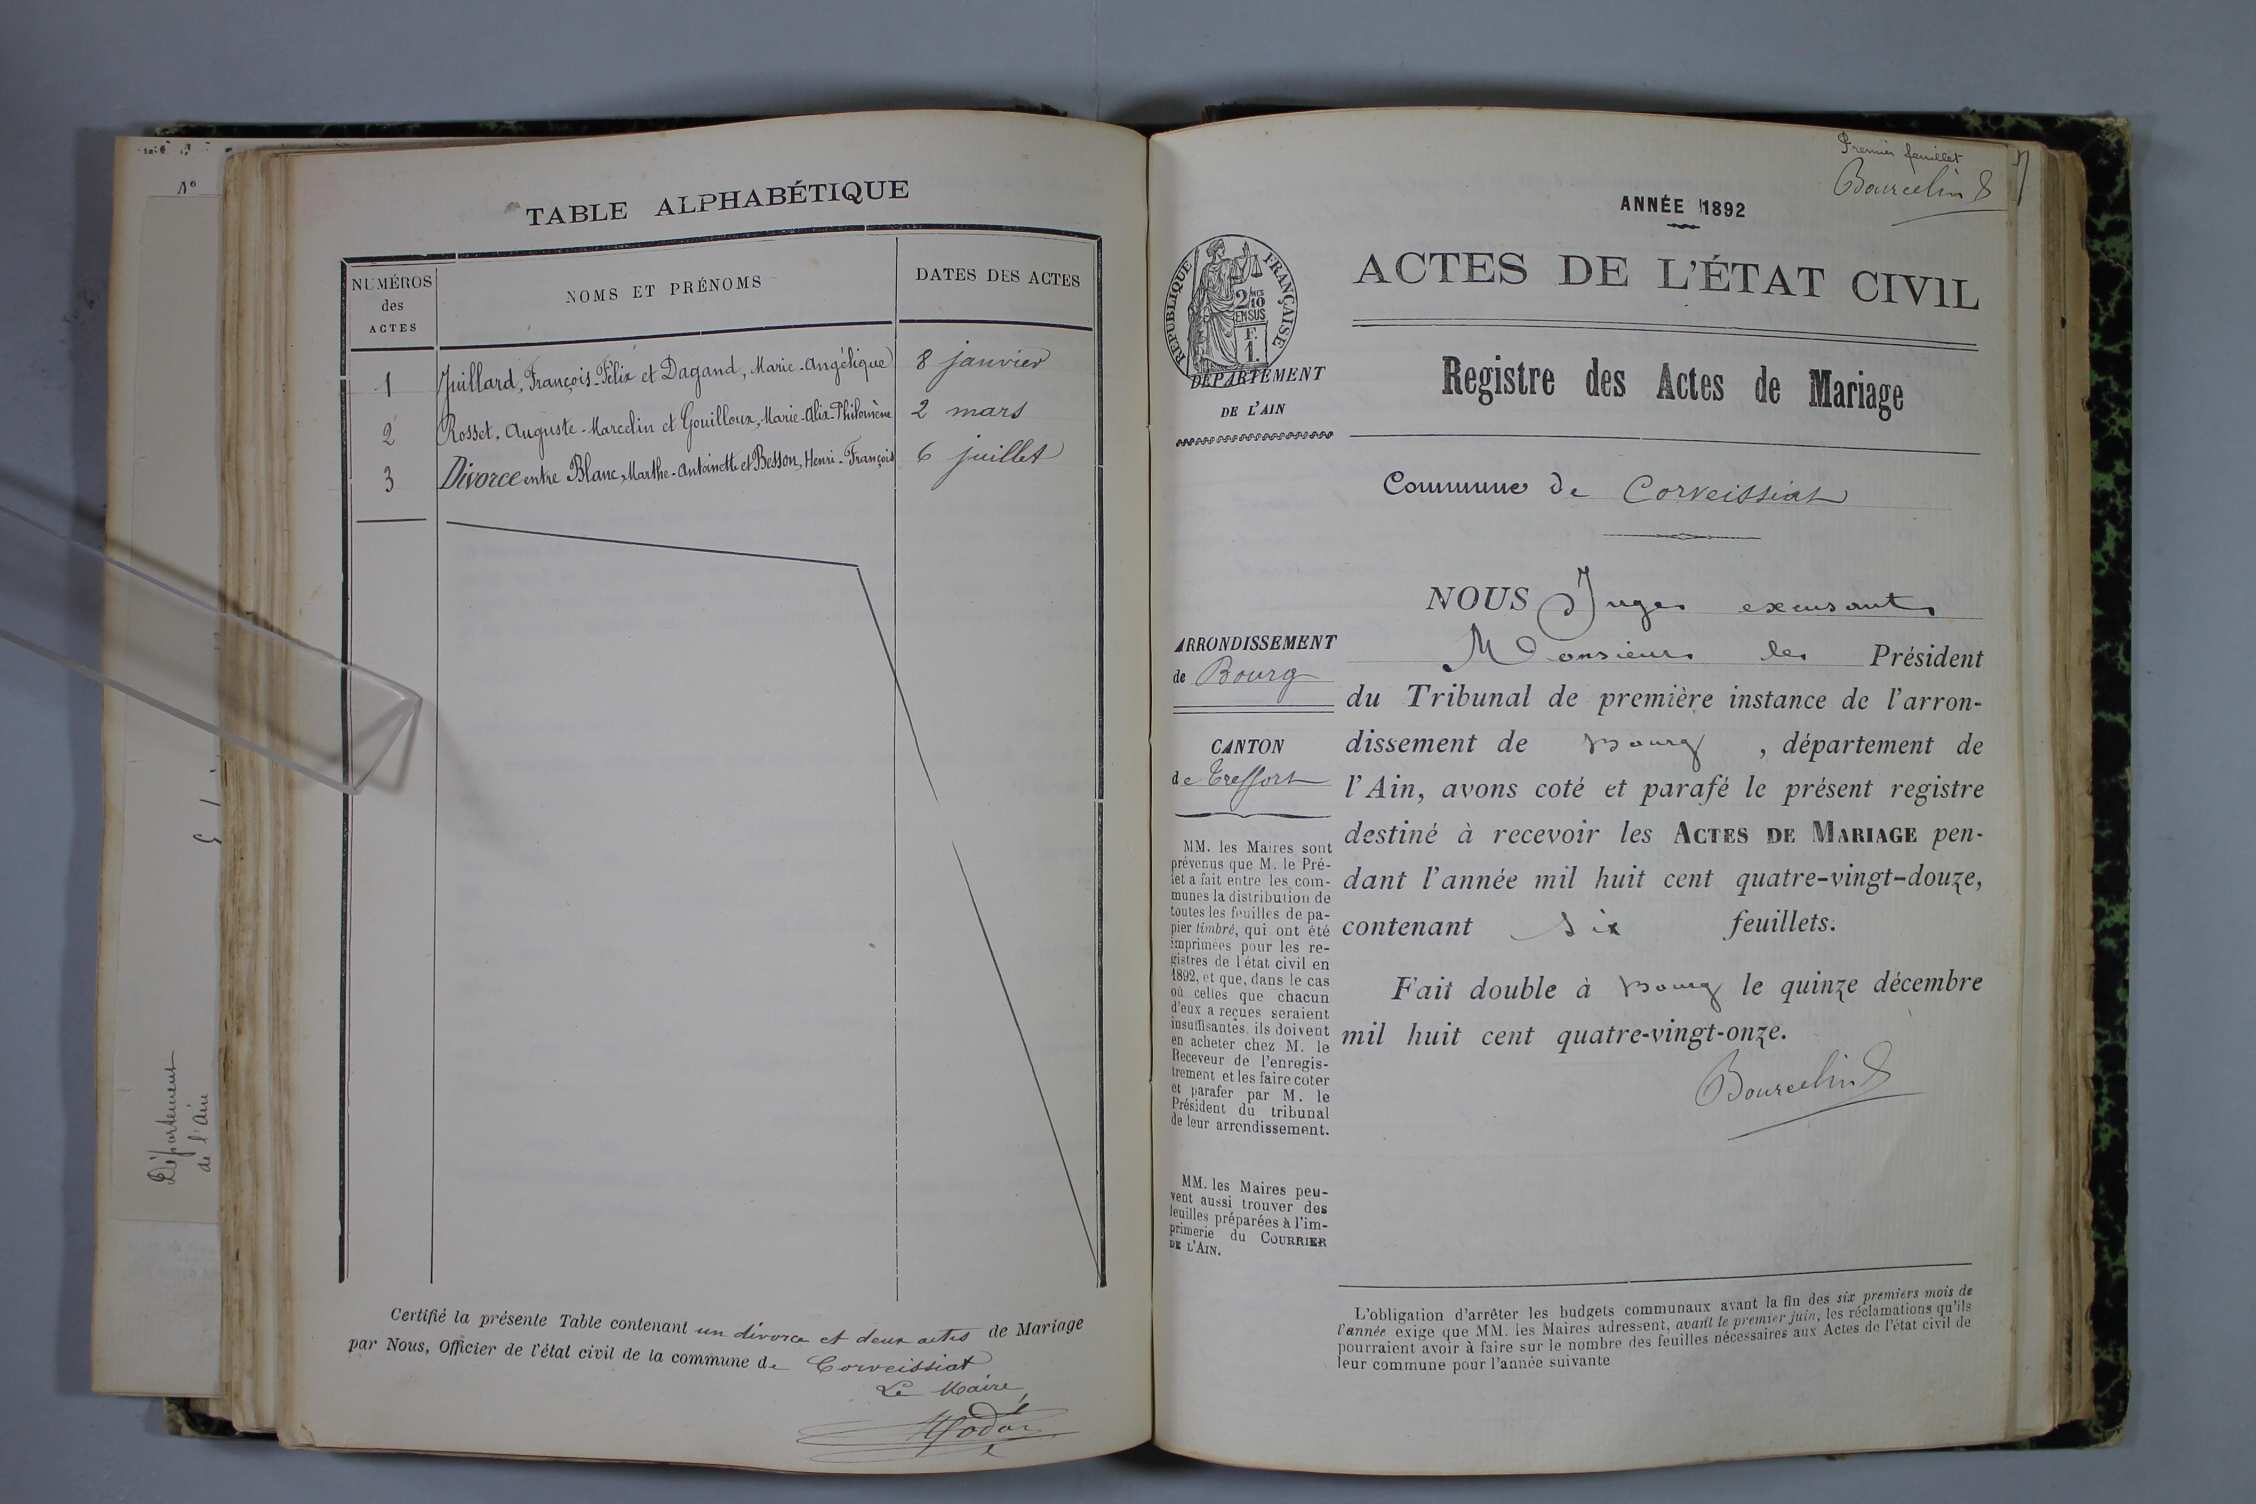 N°
Département
de l'Ain
TABLE ALPHABÉTIQUE
NUMÉROS
des
ACTES
NOMS ET PRÉNOMS
DATES DES ACTES
1 Juillard, François-Félix et Dagand, Marie-Angélique 8 janvier
2 Rosset, Auguste-Marcelin et Gouilloux, Marie-Alix-Philomène 2 mars
3 Divorce entre Blanc, Marthe-Antoinette et Besson, Henri-François 6 juillet
Certifié la présente Table contenant un divorce et deux actes de Mariage
par Nous, Officier de l'état civil de la commune de Corveissiat
Le Maire,
Premier feuillet
Bourcelin
ANNÉE 1892
RÉPUBLIQUE FRANÇAISE
2/10
EN SUS
F.
1.
ACTES DE L'ÉTAT CIVIL
DÉPARTEMENT
DE L'AIN
Registre des Actes de Mariage
Commune de Corveissiat
ARRONDISSEMENT
de Bourg
CANTON
de Treffort
MM. les Maires sont
prévenus que M. le Pré-
fet a fait entre les com-
munes la distribution de
toutes les feuilles de pa-
pier timbré, qui ont été
imprimées pour les re-
gistres de l'état civil en
1892, et que, dans le cas
où celles que chacun
d'eux a reçues seraient
insuffisantes, ils doivent
en acheter chez M. le
Receveur de l'enregis-
trement et les faire coter
et parafer par M. le
Président du tribunal
de leur arrondissement.
MM. les Maires peu-
vent aussi trouver des
feuilles préparées à l'im-
primerie du COURRIER
DE L'AIN.
NOUS Juge excusant
Monsieur le Président
du Tribunal de première instance de l'arron-
dissement de Bourg, département de
l'Ain, avons coté et parafé le présent registre
destiné à recevoir les ACTES DE MARIAGE pen-
dant l'année mil huit cent quatre-vingt-douze,
contenant six feuillets.
Fait double à Bourg le quinze décembre
mil huit cent quatre-vingt-onze.
Bourcelin
L'obligation d'arrêter les budgets communaux avant la fin des six premiers mois de
l'année exige que MM. les Maires adressent, avant le premier juin, les réclamations qu'ils
pourraient avoir à faire sur le nombre des feuilles nécessaires aux Actes de l'état civil de
leur commune pour l'année suivante